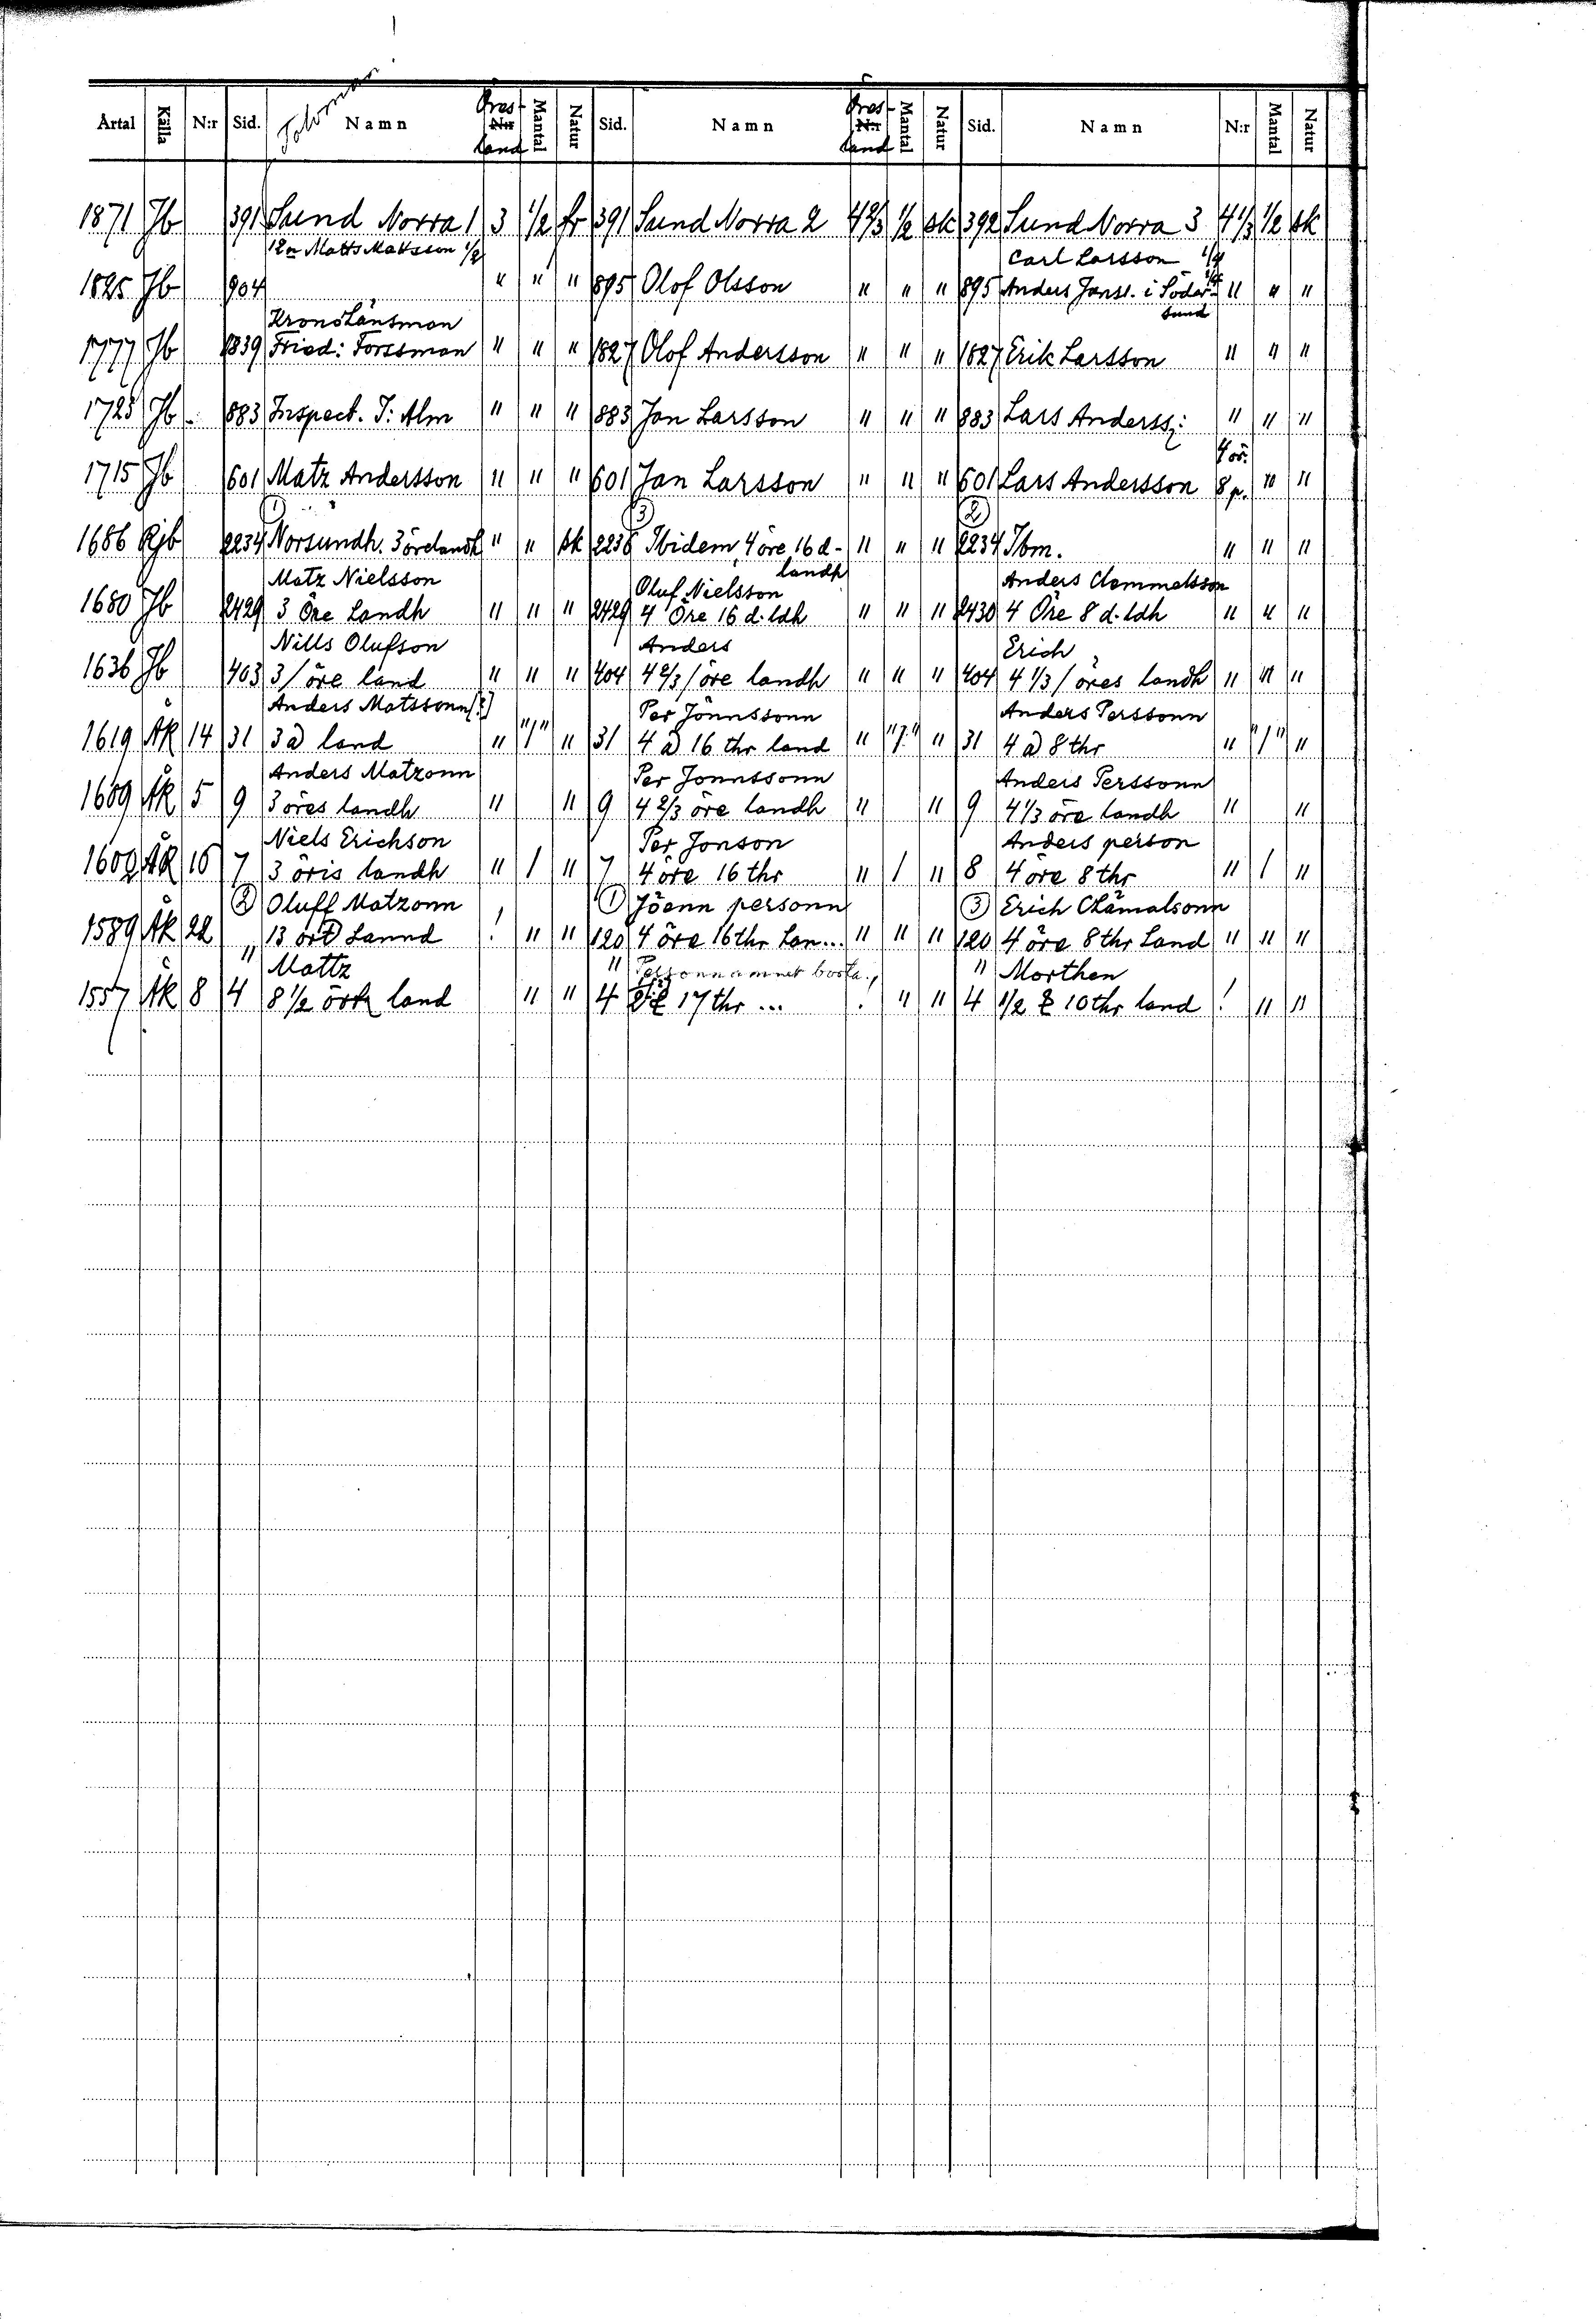 Årtal Källa N:r Sid. Namn N:r land Mantal Natur Sid. Namn N:r land Mantal Natur Sid. Namn N:r Mantal Natur
1871 Jb 391 Sund Norra 1 3 1/2 fr 391 Sund Norra 2 4 2/3 1/2 sk 392 Sund Norra 3 4 1/3 1/2 sk
Matts Mattsson 1/2 Carl Larsson
1825 Jb 904 " " " 895 Olof Olsson " " " 895 Anders Janss. i Söder- " " "
sund
Kronolänsman
1777 Jb 1839 Fried: Forssman " " " 1827 Olof Andersson " " " 1827 Erik Larsson " " "
1725 Jb 883 Inspect. J: Alm " " " 883 Jan Larsson " " " 883 Lars Anderss: " " "
4 ör.
1715 Jb 601 Matz Andersson " " " 601 Jan Larsson " " " 601 Lars Andersson 8 p. " "
1 3 2
1686 Rjb 2234 Norsundh. 3 örelandh " " sk 2236 Ibidem, 4 öre 16 d- " " " 2234 Ibm. " " "
landh
Matz Nielsson Oluf Nielsson Anders Clemmetsson
1680 Jb 2429 3 Öre Landh " " " 2429 4 Öre 16 d. ldh " " " 2430 4 Öre 8 d. ldh " " "
Nills Olufson Anders Erich
1636 Jb 403 3/ öre land " " " 404 4 2/3/ öre landh " " " 404 4 1/3/ öres landh " " "
Anders Matssonn [?] Per Jönnssonn Anders Perssonn
1619 Äk 14 31 3 a land " "1" " 31 4 a 16 thr land " "1" " 31 4 a 8 thr " "1" "
Anders Matzonn Per Jonnssonn Anders Perssonn
1609 Åk 5 9 3 öres landh " " 9 4 2/3 öre landh " " 9 4 1/3 öre landh " "
Niels Erichson Per Jonson Anders person
1602 ÅK 16 7 3 öris landh " 1 " 7 4 öre 16 thr " 1 " 8 4 öre 8 thr " 1 "
2 Oluff Matzonn 1 Jöenn personn 3 Erich Chämalsonn
1589 Åk 22 " 13 ört Lannd ! " " 120 4 öre 16 thr Lan... " " " 120 4 öre 8 thr Land " " "
" Mattz " Personnamnet borta. " Morthen
1557 Åk 8 4 8 1/2 örtz land " " 4 17 thr ... ! " " 4 1/2 10 thr land ! " "